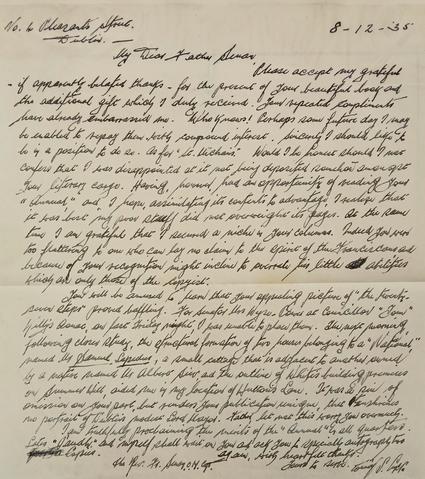 No. 6 Pleasants Street.
Dublin.
8-12-35
My Dear Father Senan
Please accept my grateful
- if apparently belated thanks - for the present of your beautiful book and
the additional gift which I duly received. Your repeated compliments
have already embarrassed me. Who knows! Perhaps some future day I may
be enabled to repay them with compound interest. Sincerely I should like to
be in a position to do so. As for "St. Michan's" Would I be honest should I not
confess that I was disappointed at it not being deposited somehow amongst
your literary cargo. Having, however, had an opportunity of reading your
"Annual" and, I hope, assimilating its contents to advantage, I realise that
it was best my poor stuff did not overweight its pages. At the same
time I am grateful that I secured a niche in your columns. Indeed you were
too flattering to one who can lay no claim to the spirit of the Franciscan and
because of your recognition might incline to overrate his little abilities
which are only those of the copyist.
You will be amused to learn that your appealing picture of "the twenty-
seven steps" proved baffling. For
at Councillor "Tom"
on last Friday night, I was unable to place them. The next morning,
following close study, the structural formation of two houses belonging to a "National"
named
a small cottage that is adjacent to another owned
by a
named
and the outline of White's building premises
on Summer Hill, aided me in my location of Hutton's Lane. It was a sin of
omission on your part, but renders your publication unique, that
no portrait of
Lord Mayor. Father let me thus worry you overmuch.
I am faithfully proclaiming the merits of the "Annual" in all quarters.
and myself shall wait on you and ask you to specially autograph two
Copies.
Again, with heartfelt thanks!
The Rev. Fr. Senan, O.M.Cap.
Yours to serve.